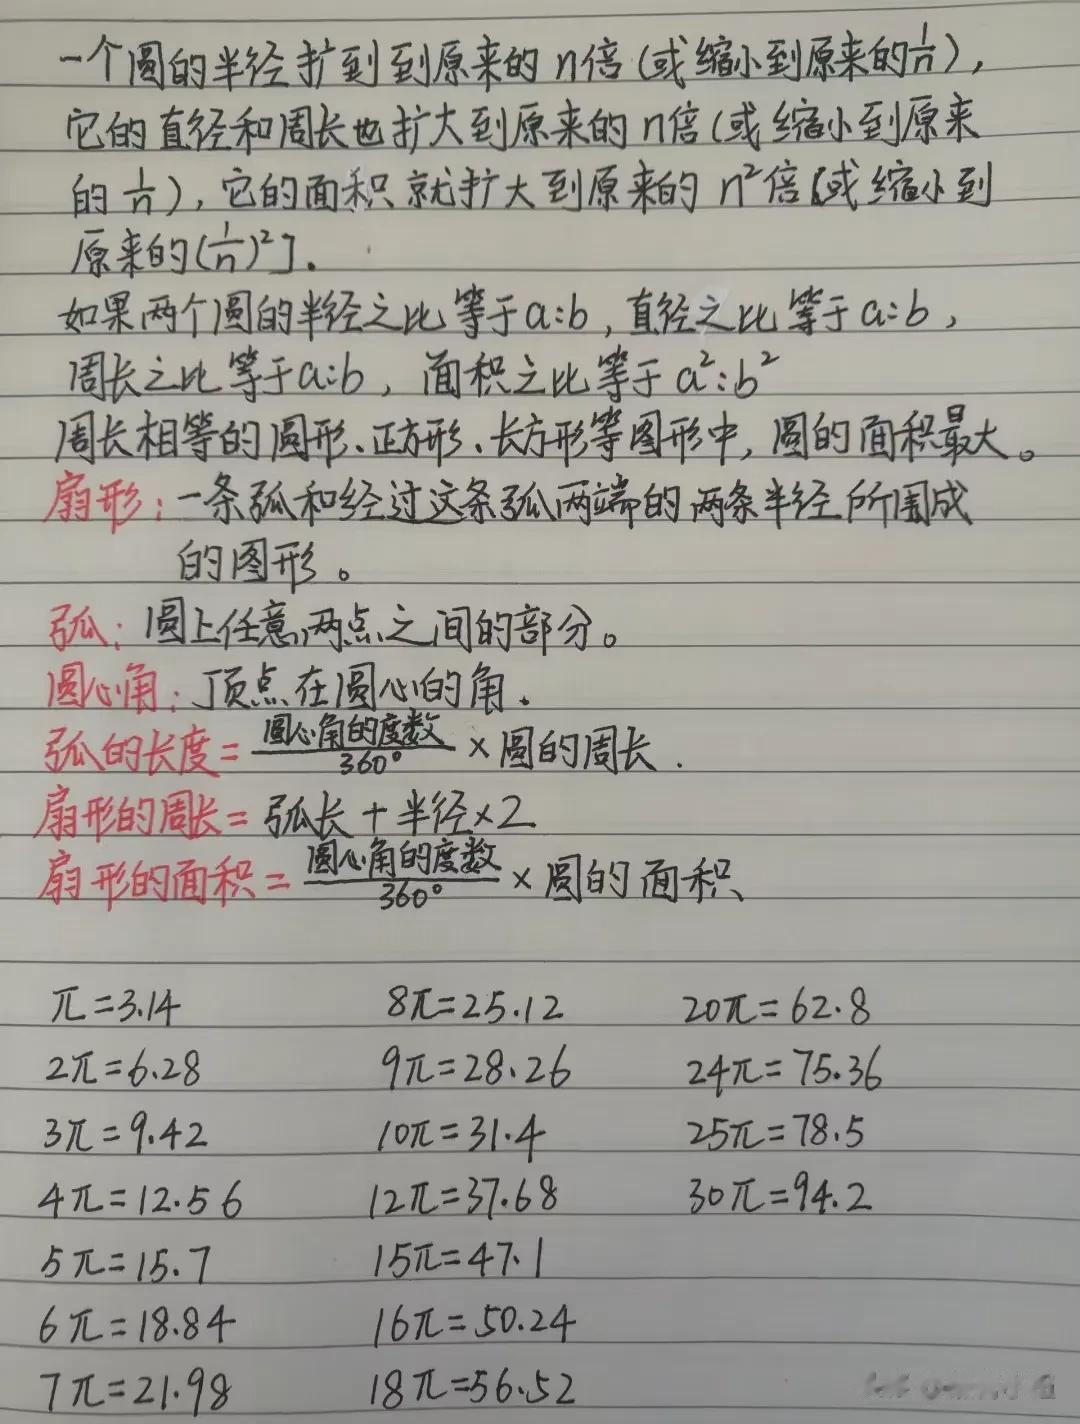 一个圆的半径扩到到原来的n倍(或缩小到原来的1/n),
它的直径和周长也扩大到原来的n倍(或缩小到原来
的1/n),它的面积就扩大到原来的n²倍[或缩小到
原来的(1/n)²].
如果两个圆的半径之比等于a:b,直径之比等于a:b,
周长之比等于a:b,面积之比等于a²:b²
周长相等的圆形、正方形、长方形等图形中,圆的面积最大。
扇形:一条弧和经过这条弧两端的两条半径所围成
的图形。
弧:圆上任意两点之间的部分。
圆心角:顶点在圆心的角.
弧的长度=圆心角的度数/360°×圆的周长.
扇形的周长=弧长+半径×2
扇形的面积=圆心角的度数/360°×圆的面积
π=3.14 8π=25.12 20π=62.8
2π=6.28 9π=28.26 24π=75.36
3π=9.42 10π=31.4 25π=78.5
4π=12.56 12π=37.68 30π=94.2
5π=15.7 15π=47.1
6π=18.84 16π=50.24
7π=21.98 18π=56.52